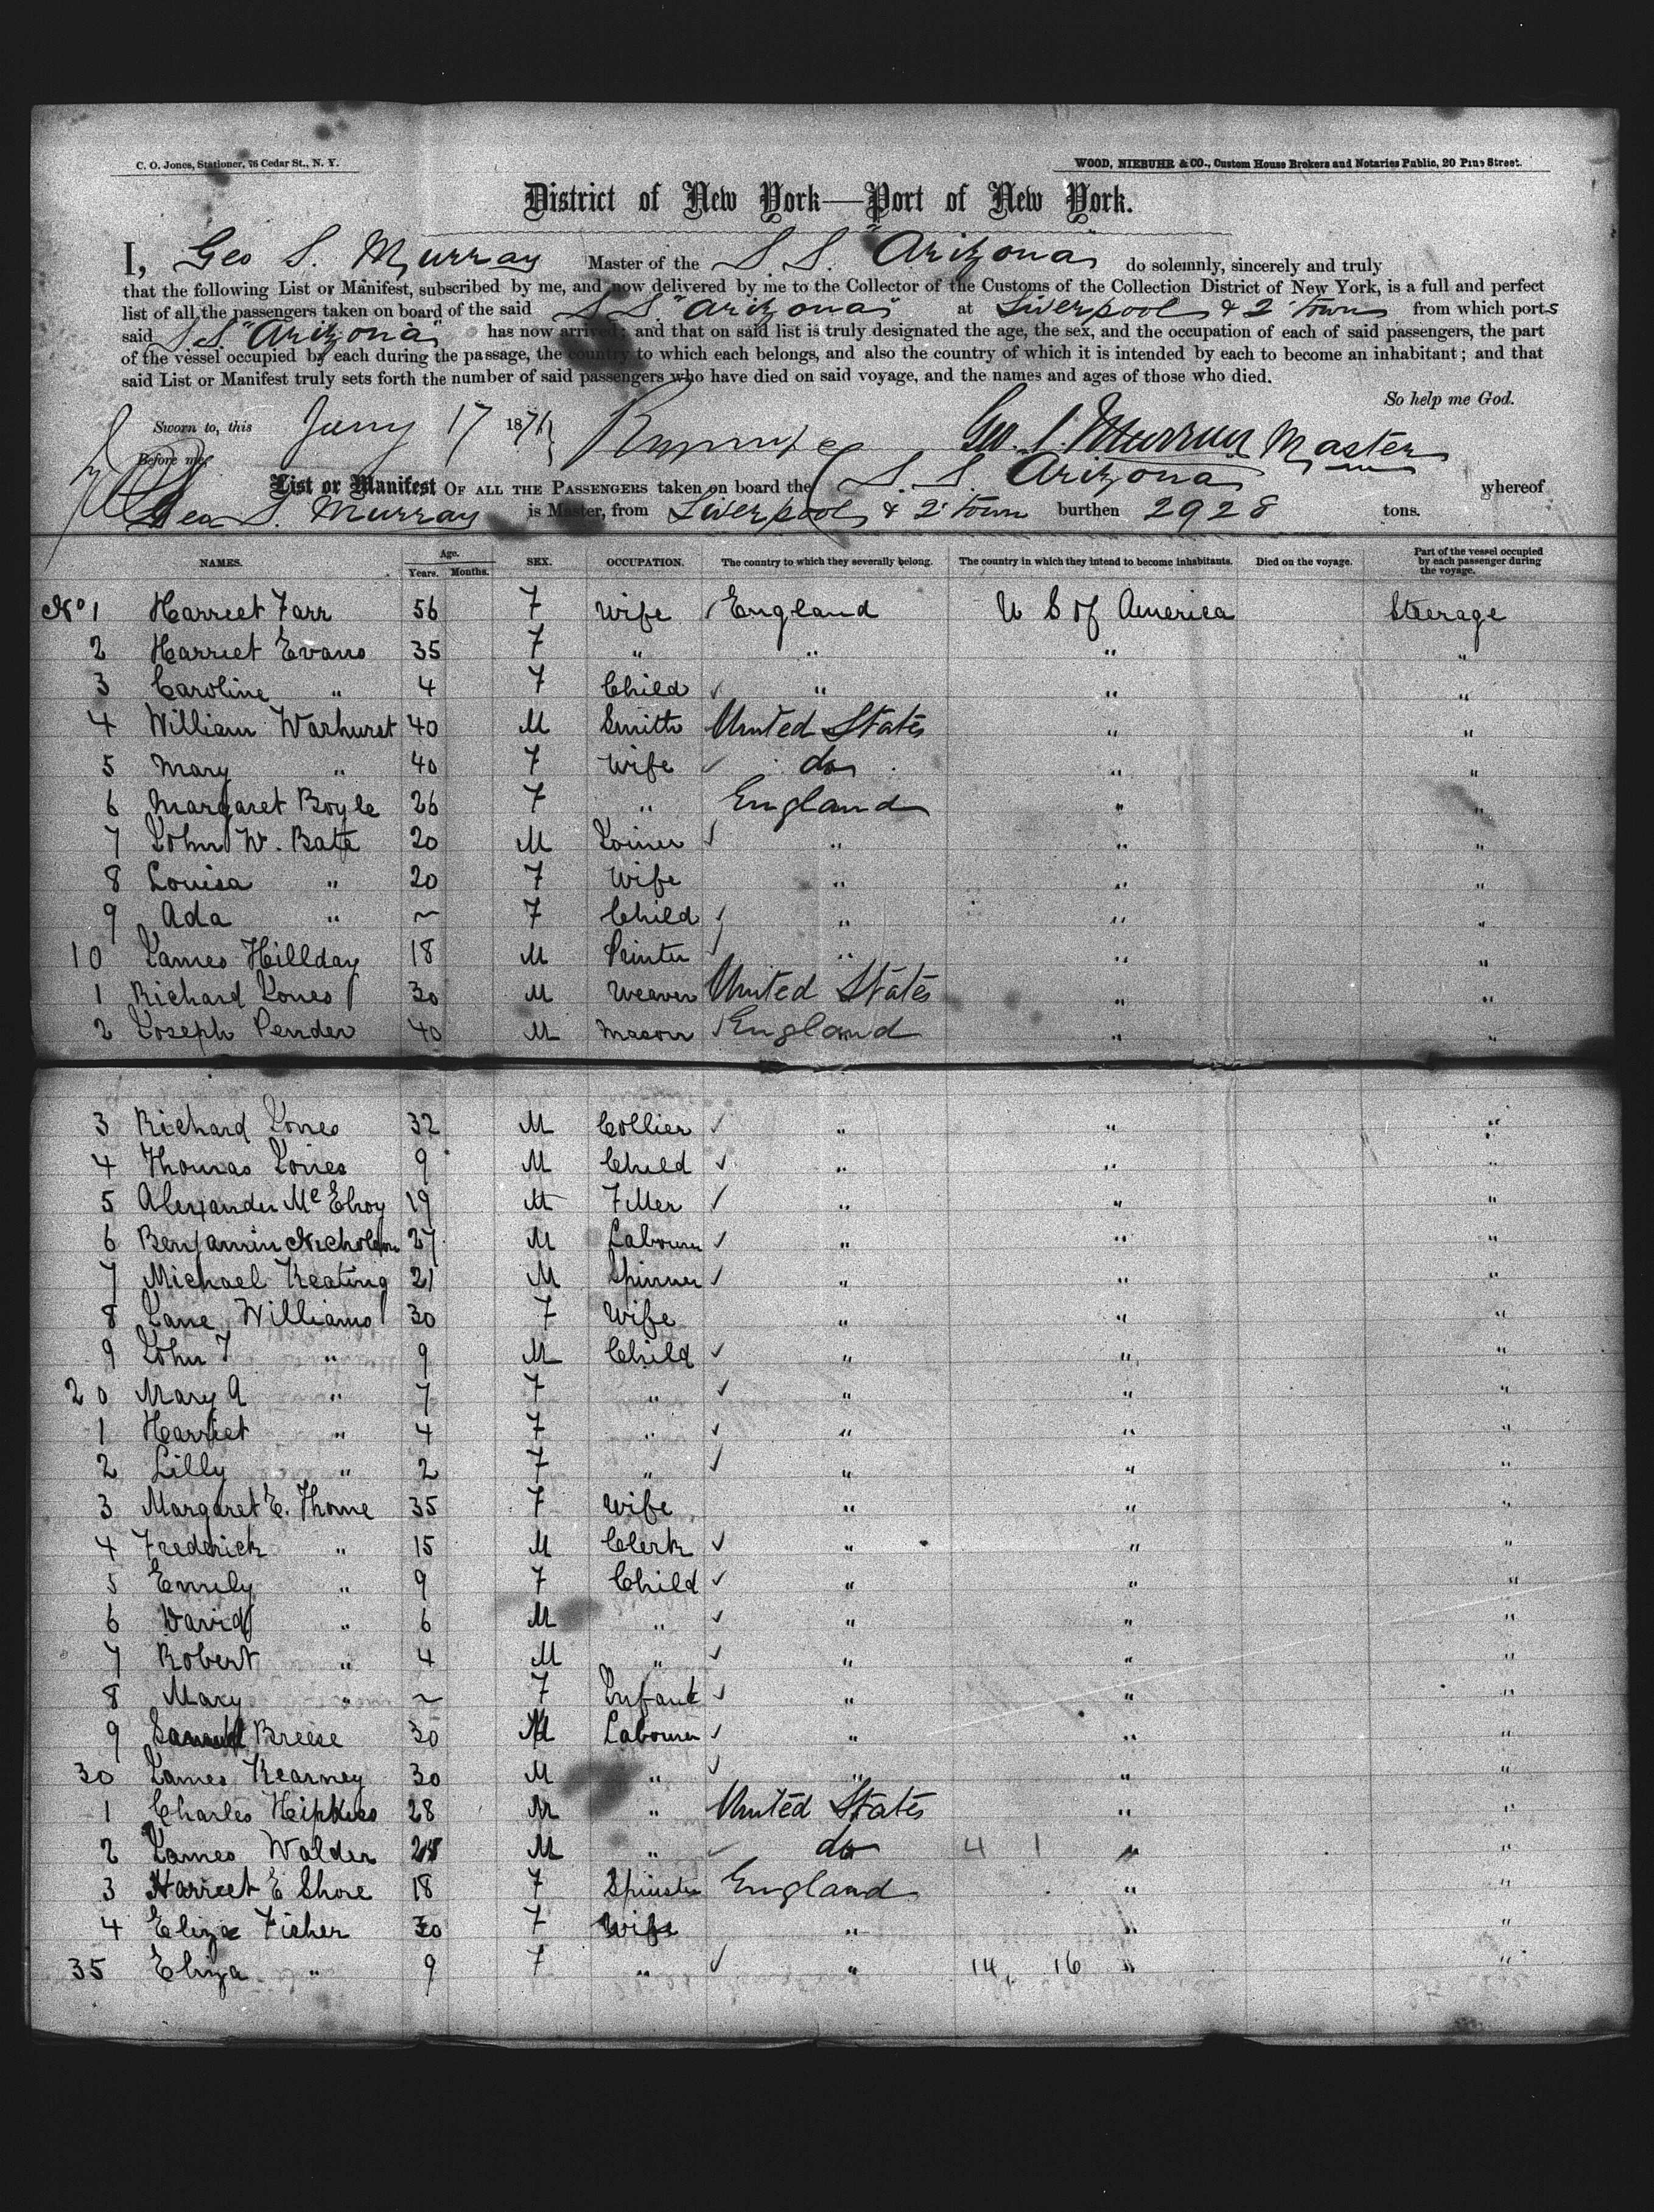 C. O. Jones, Stationer, 76 Cedar St., N. Y.
WOOD, NIEBUHR & CO., Custom House Brokers and Notaries Public, 20 Pine Street.
District of New York—Port of New York.
I, Geo S. Murray Master of the S. S. "Arizona" do solemnly, sincerely and truly
that the following List or Manifest, subscribed by me, and now delivered by me to the Collector of the Customs of the Collection District of New York, is a full and perfect
list of all the passengers taken on board of the said S S "Arizona" at Liverpool & 2 town from which ports
said S.S. "Arizona" has now arrived; and that on said list is truly designated the age, the sex, and the occupation of each of said passengers, the part
of the vessel occupied by each during the passage, the country to which each belongs, and also the country of which it is intended by each to become an inhabitant; and that
said List or Manifest truly sets forth the number of said passengers who have died on said voyage, and the names and ages of those who died.
So help me God.
Sworn to, this 17 187 Geo. S. Murray Master
Before me,
List or Manifest OF ALL THE PASSENGERS taken on board the S. S. Arizona whereof
Geo S. Murray is Master, from Liverpool & 2 town burthen 2928 tons.
NAMES. Age. Years. Months. SEX. OCCUPATION. The country to which they severally belong. The country in which they intend to become inhabitants. Died on the voyage. Part of the vessel occupied by each passenger during the voyage.
No 1 Harriet Farr 56 F Wife England U S of America Steerage
2 Harriet Evans 35 F " " " "
3 Caroline " 4 F Child " " "
4 William Warhurst 40 M Smith United States " "
5 Mary " 40 F Wife do " "
6 Margaret Boyle 26 F " England " "
7 John W. Bate 20 M Joiner " " "
8 Louisa " 20 F Wife " " "
9 Ada " ~ F Child " " "
10 James Hillday 18 M Printer " " "
1 Richard Jones 30 M Weaver United States " "
2 Joseph Pender 40 M Mason England " "
3 Richard Jones 32 M Collier " " "
4 Thomas Jones 9 M Child " " "
5 Alexander McElroy 19 M " " "
6 Benjamin Nicholson 27 M Labourer " " "
7 Michael Keating 21 M Spinner " " "
8 Jane Williams 30 F Wife " " "
9 John T " 9 M Child " " "
20 Mary A " 7 F " " " "
1 Harriet " 4 F " " " "
2 Lilly " 2 F " " " "
3 Margaret E. Thorne 35 F Wife " " "
4 Frederick " 15 M Clerk " " "
5 Emily " 9 F Child " " "
6 David " 6 M " " " "
7 Robert " 4 M " " " "
8 Mary " ~ F Infant " " "
9 Breese 30 M Labourer " " "
30 James Kearney 30 M " " " "
1 Charles 28 M " United States " "
2 James Walder M " do 4 1 " "
3 Harriet E Shore 18 F Spinster England " "
4 Eliza Fisher 30 F Wife " " "
35 Eliza " 9 F " " 14, 16 " "